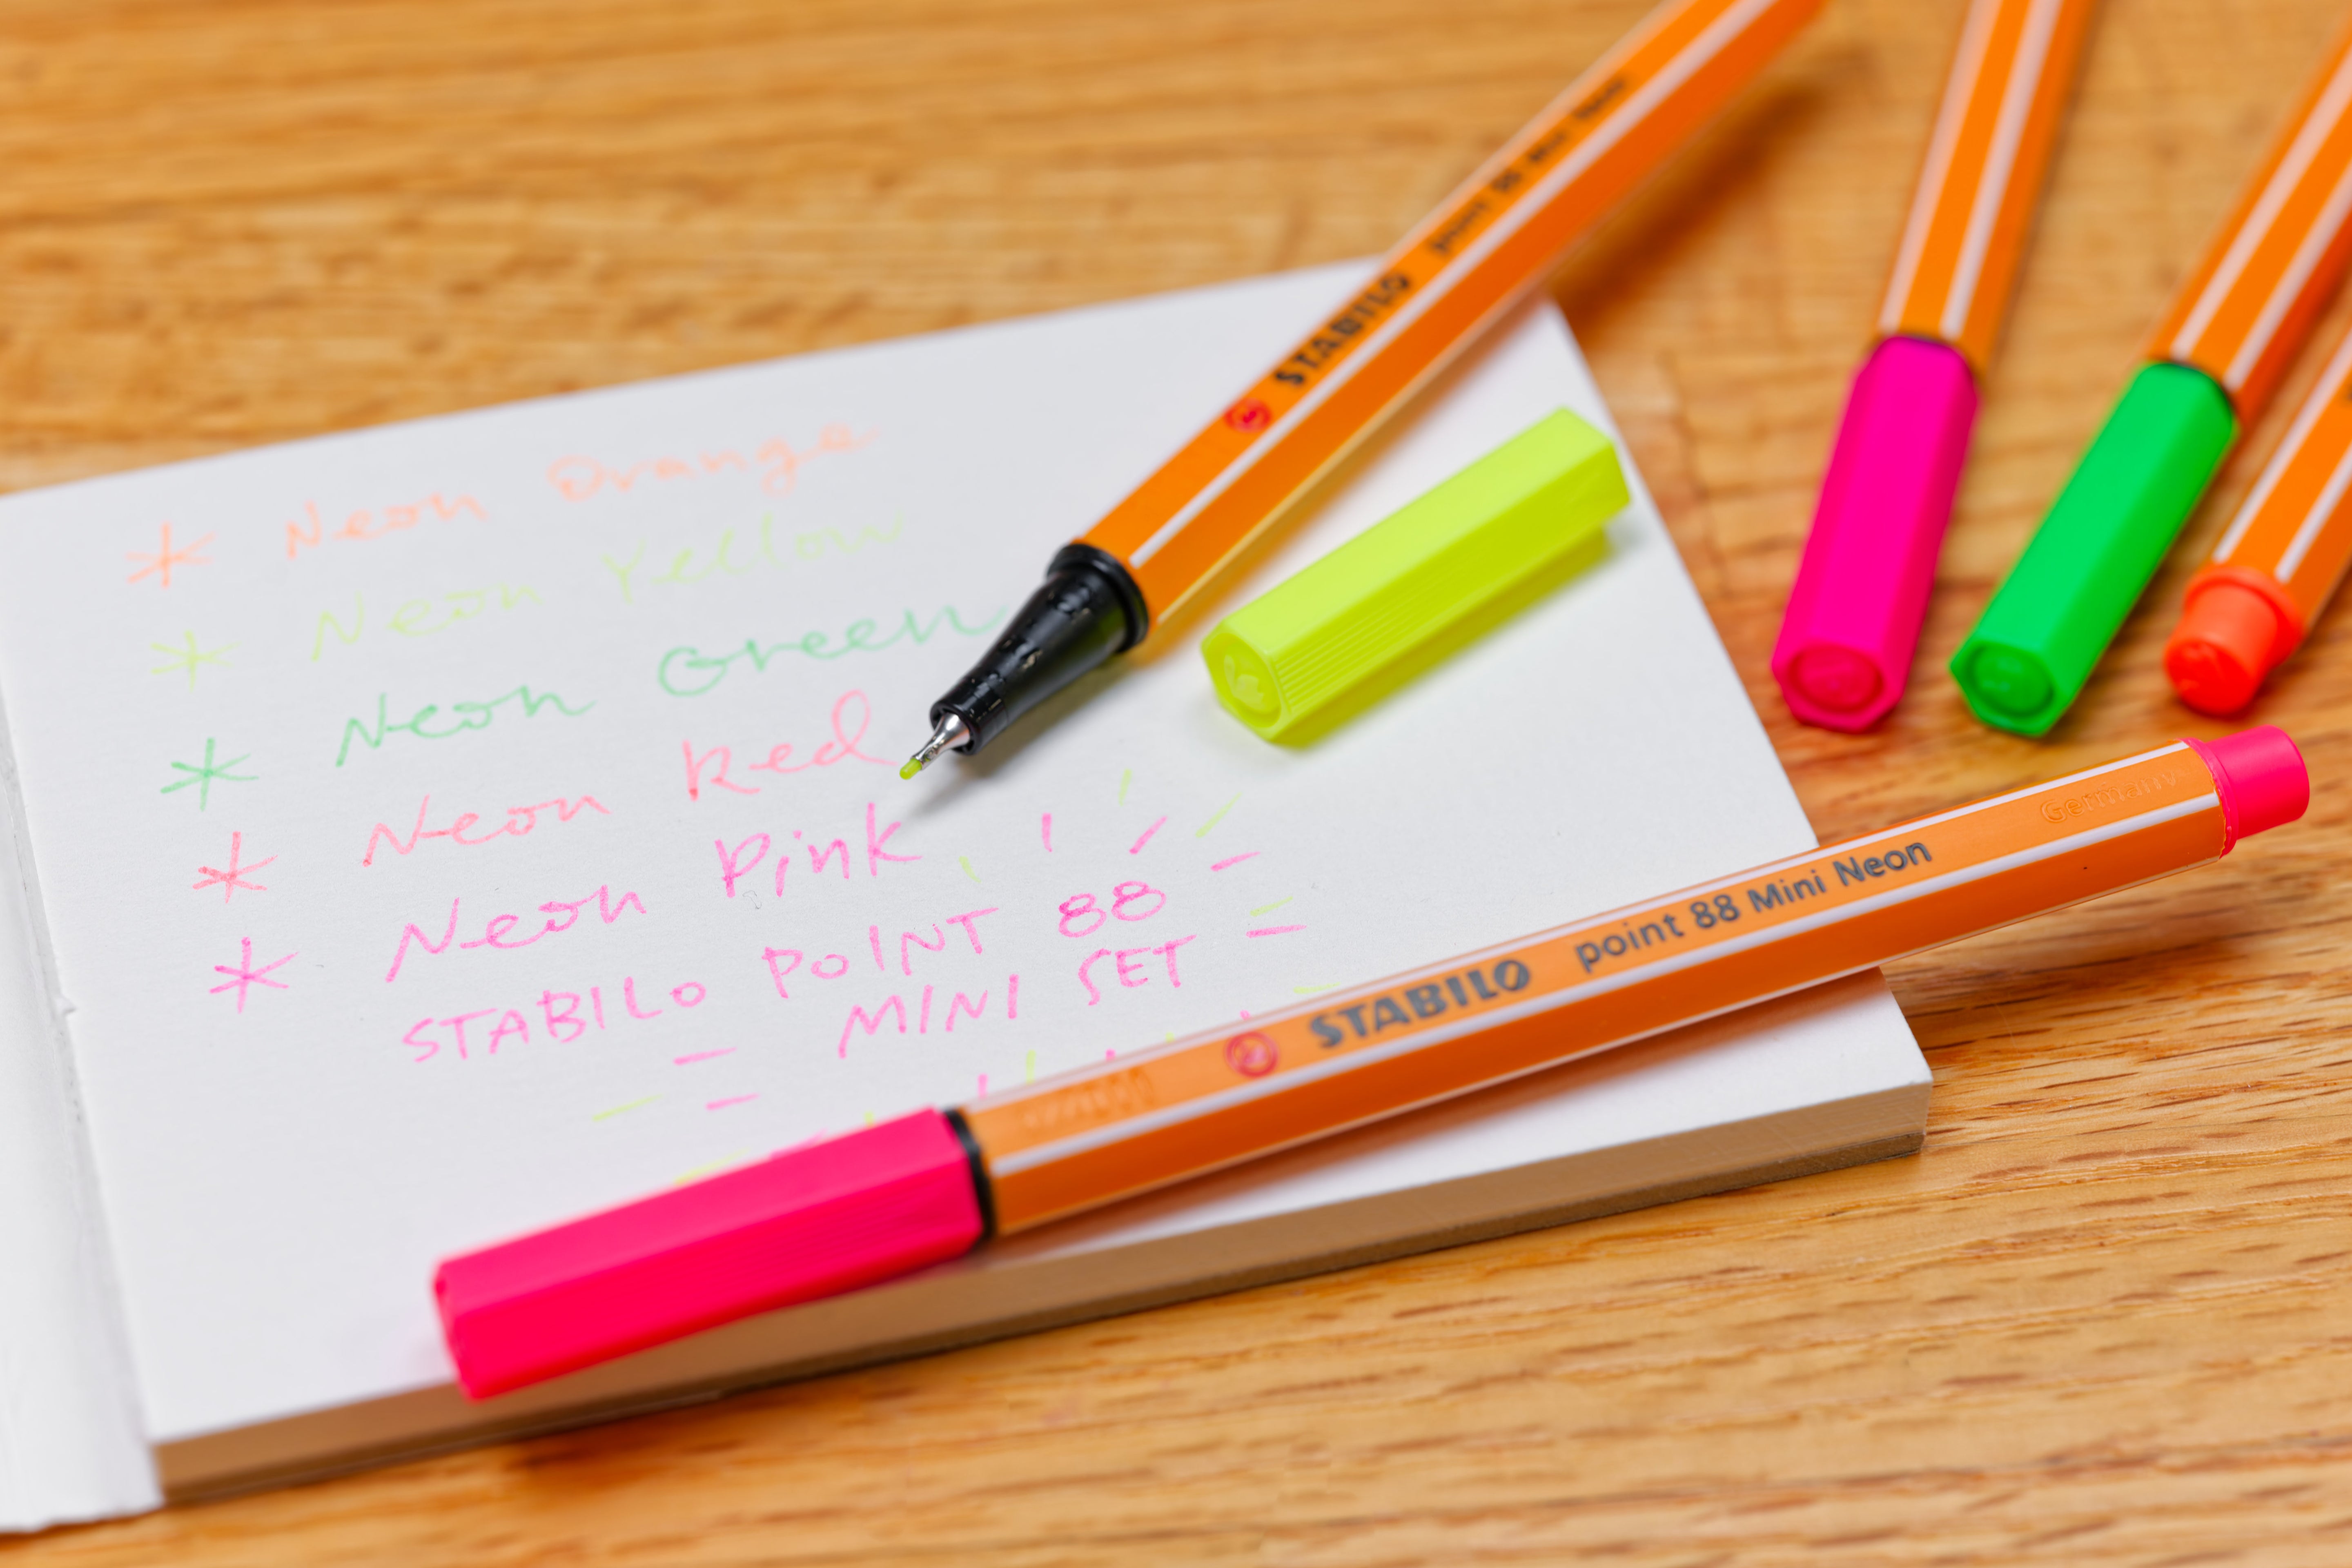 * Neon Orange
* Neon Yellow
* Neon Green
* Neon Red
* Neon Pink
STABILO POINT 88
MINI SET
STABILO point 88 Mini Neon
STABILO point 88 Mini Neon
Germany